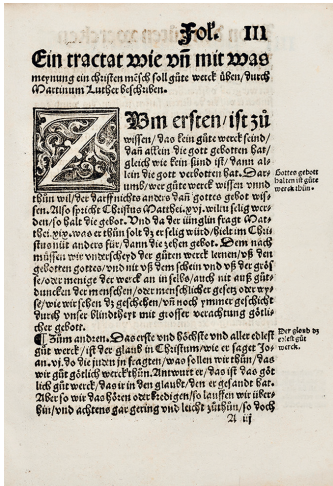 Fol. III
Ein tractat wie vñ mit was
meynung ein christen mēsch soll gůte werck üben, durch
Martinum Luther beschriben.
ZUm ersten/ist zů
wissen/das kein gůte werck sind/
dañ allein die gott gebotten hat/
gleich wie kein sünd ist/dann al-
lein die gott verbotten hat. Dar-
umb/wer gůte werck wissen vnnd
thůn wil/der darff nichts anders dañ gottes gebot wis-
sen. Also spricht Christus Matthei.xvj. wiltu selig wer-
den/so halt die gebot. Vnd da der iüngling fragt Mat-
thei.xix. was er thůn solt dz er selig würd/hielt im Chri-
stus nüt anders für/dann die zehen gebot. Dem nach
müssen wir vnderscheyd der gůten werck lernen/vß den
gebotten gottes/vnd nit vß dem schein vnd vß der grös-
se/oder menge der werck an in selbs/auch nit auß gůt-
duncken der menschen/oder menschlicher gesetz oder wy-
se/wie wir sehen dz geschehen/vñ noch ymmer geschicht
durch vnser blindtheyt mit grosser verachtung götli-
cher gebott.
Gottes gebott
halten ist gůte
werck thůn.
¶ Zům andren. Das erste vnd höchste vnd aller edlest
gůt werck/ist der glaub in Christum/wie er saget Jo-
an.vj. do die juden in fragten/was sollen wir thůn/das
wir gůt götlich werck thůn. Antwurt er/das ist das göt-
lich gůt werck/das ir in den glaubt/den er gesandt hat.
Aber so wir das hören oder predigen/so lauffen wir über-
hin/vnd achtens gar gering vnd leicht zůthůn/so doch
Der glaub dz
edlest gůt
werck.
A iij